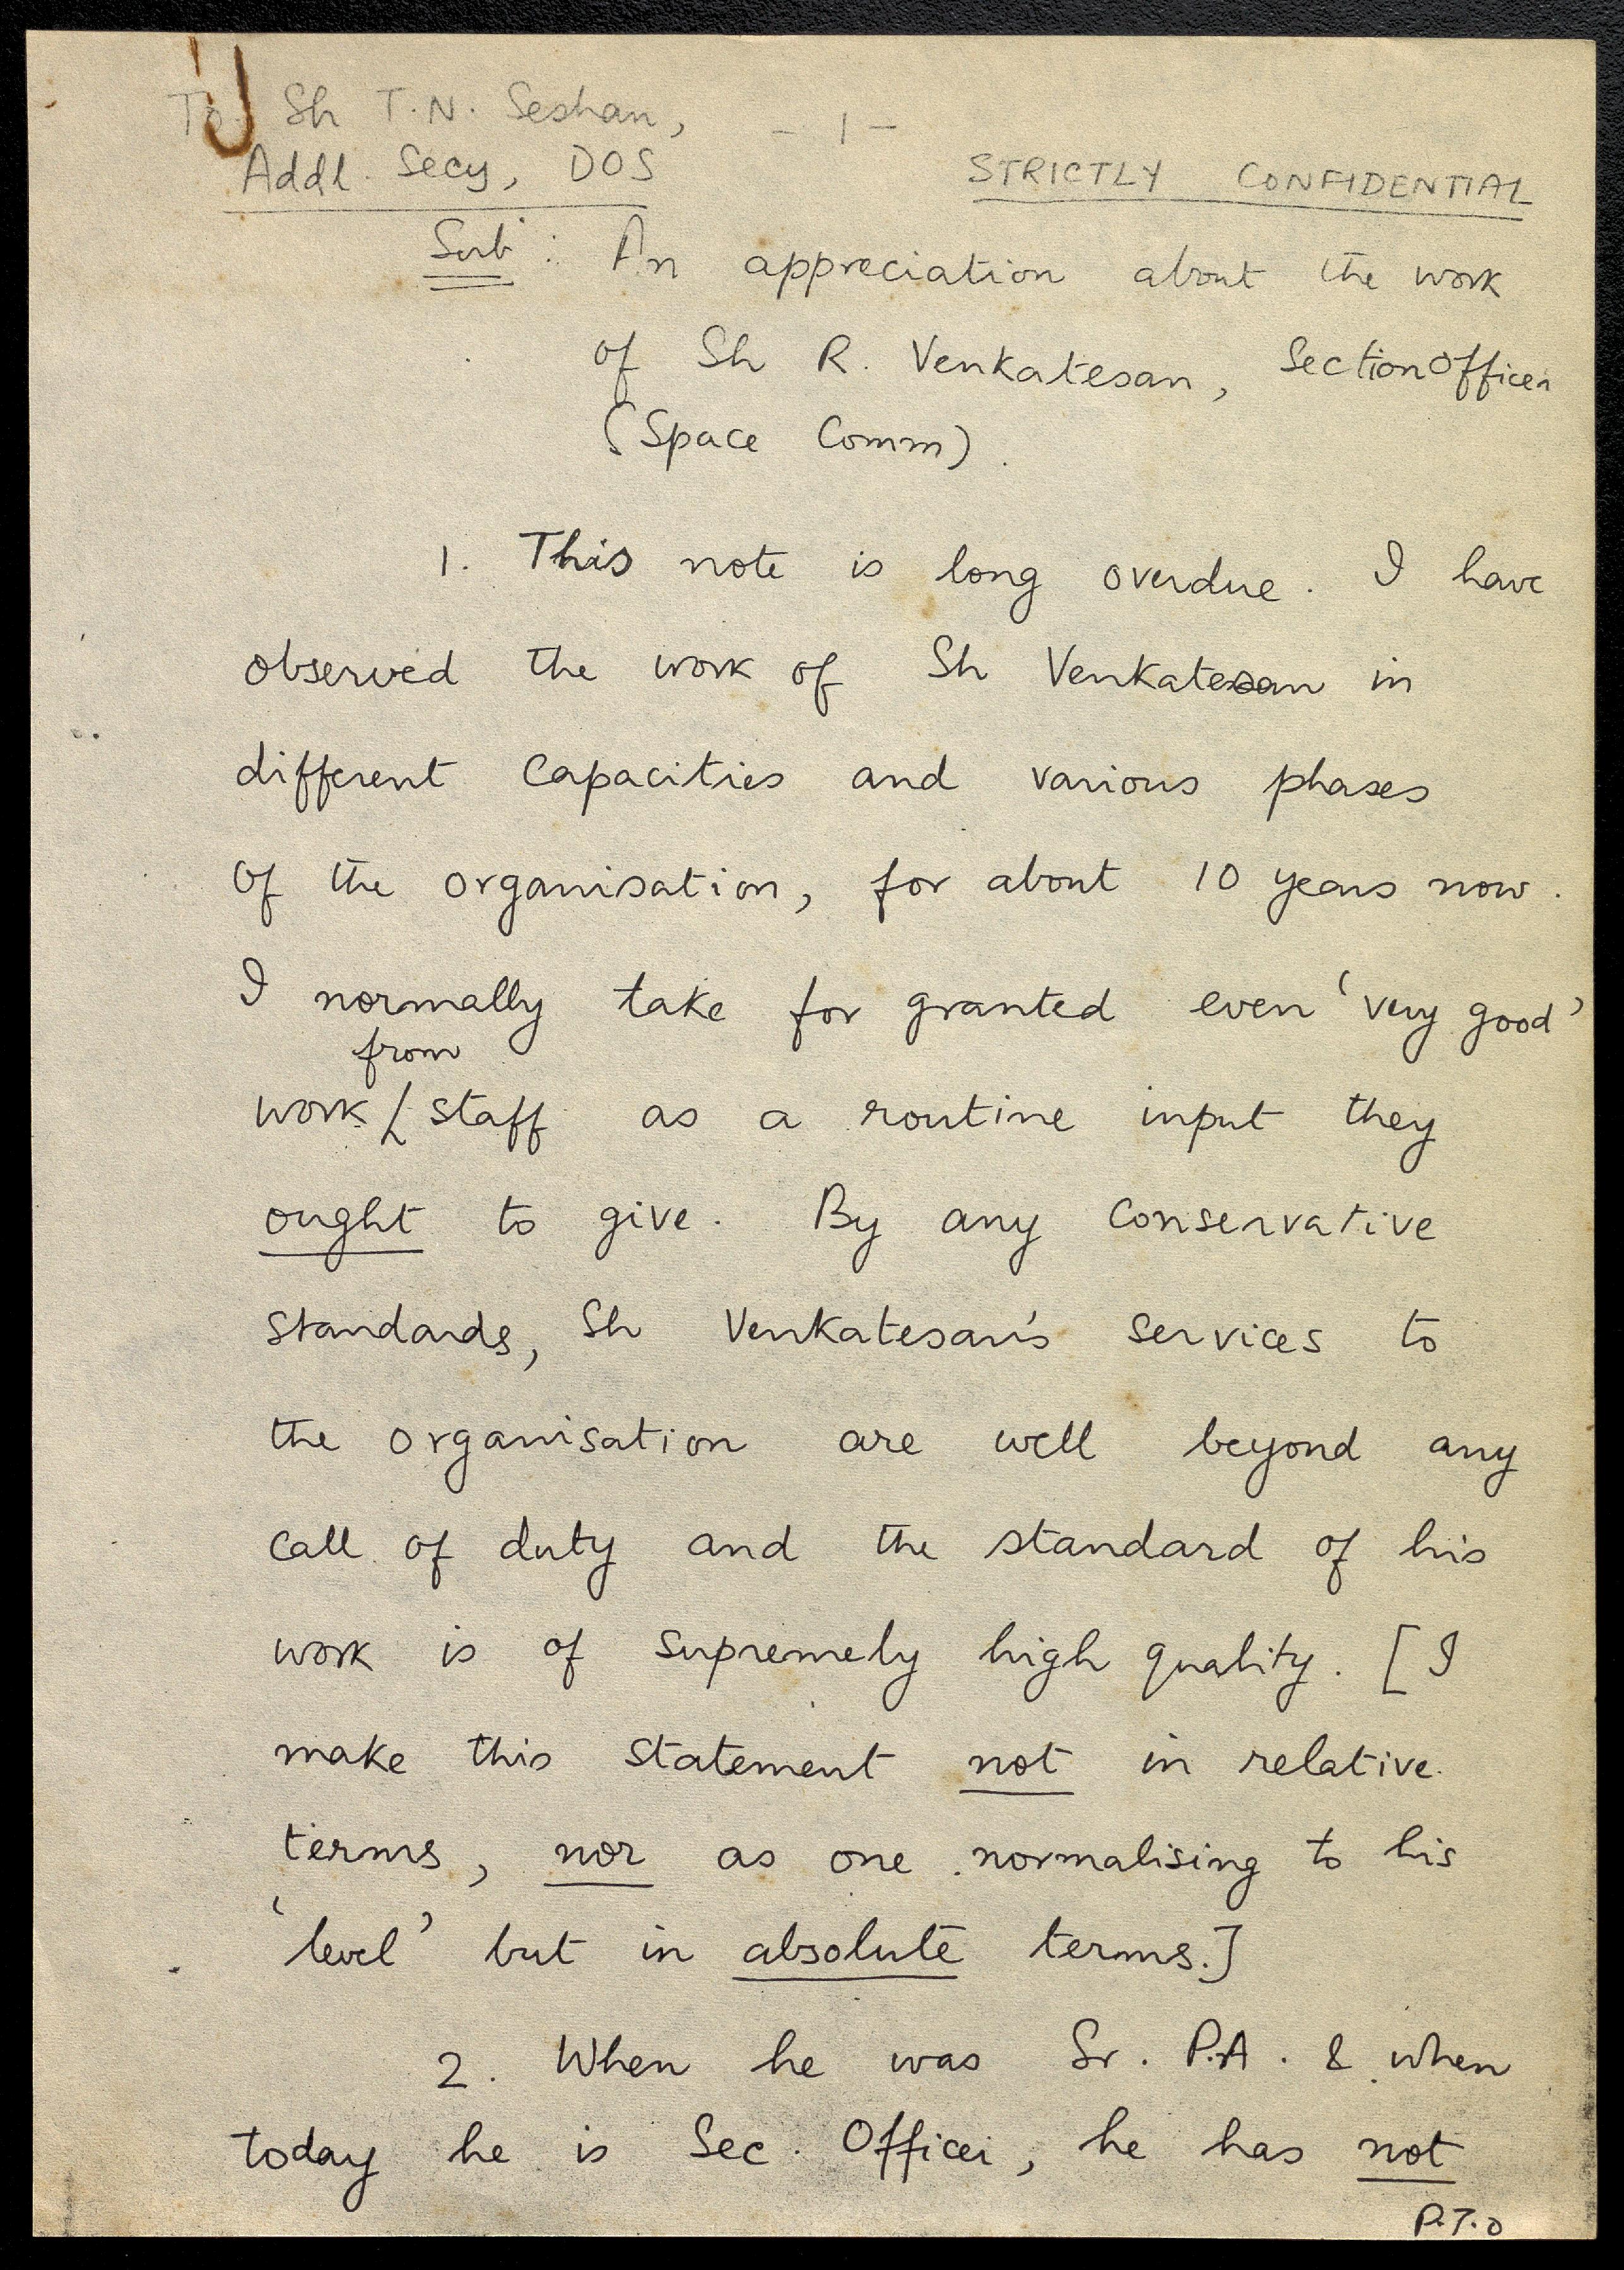 To Sh T.N. Seshan,
- 1 -
Addl. Secy, DOS
STRICTLY CONFIDENTIAL
Sub: An appreciation about the work
of Sh R. Venkatesan, Section Officer
(Space Comm).
1. This note is long overdue. I have
observed the work of Sh Venkatesan in
different capacities and various phases
of the organisation, for about 10 years now.
I normally take for granted even 'very good'
from
work / staff as a routine input they
ought to give. By any conservative
standards, Sh Venkatesan's services to
the organisation are well beyond any
call of duty and the standard of his
work is of supremely high quality. [I
make this statement not in relative
terms, nor as one normalising to his
'level' but in absolute terms.]
2. When he was Sr. P.A. & when
today he is Sec. Officer, he has not
P.T.O